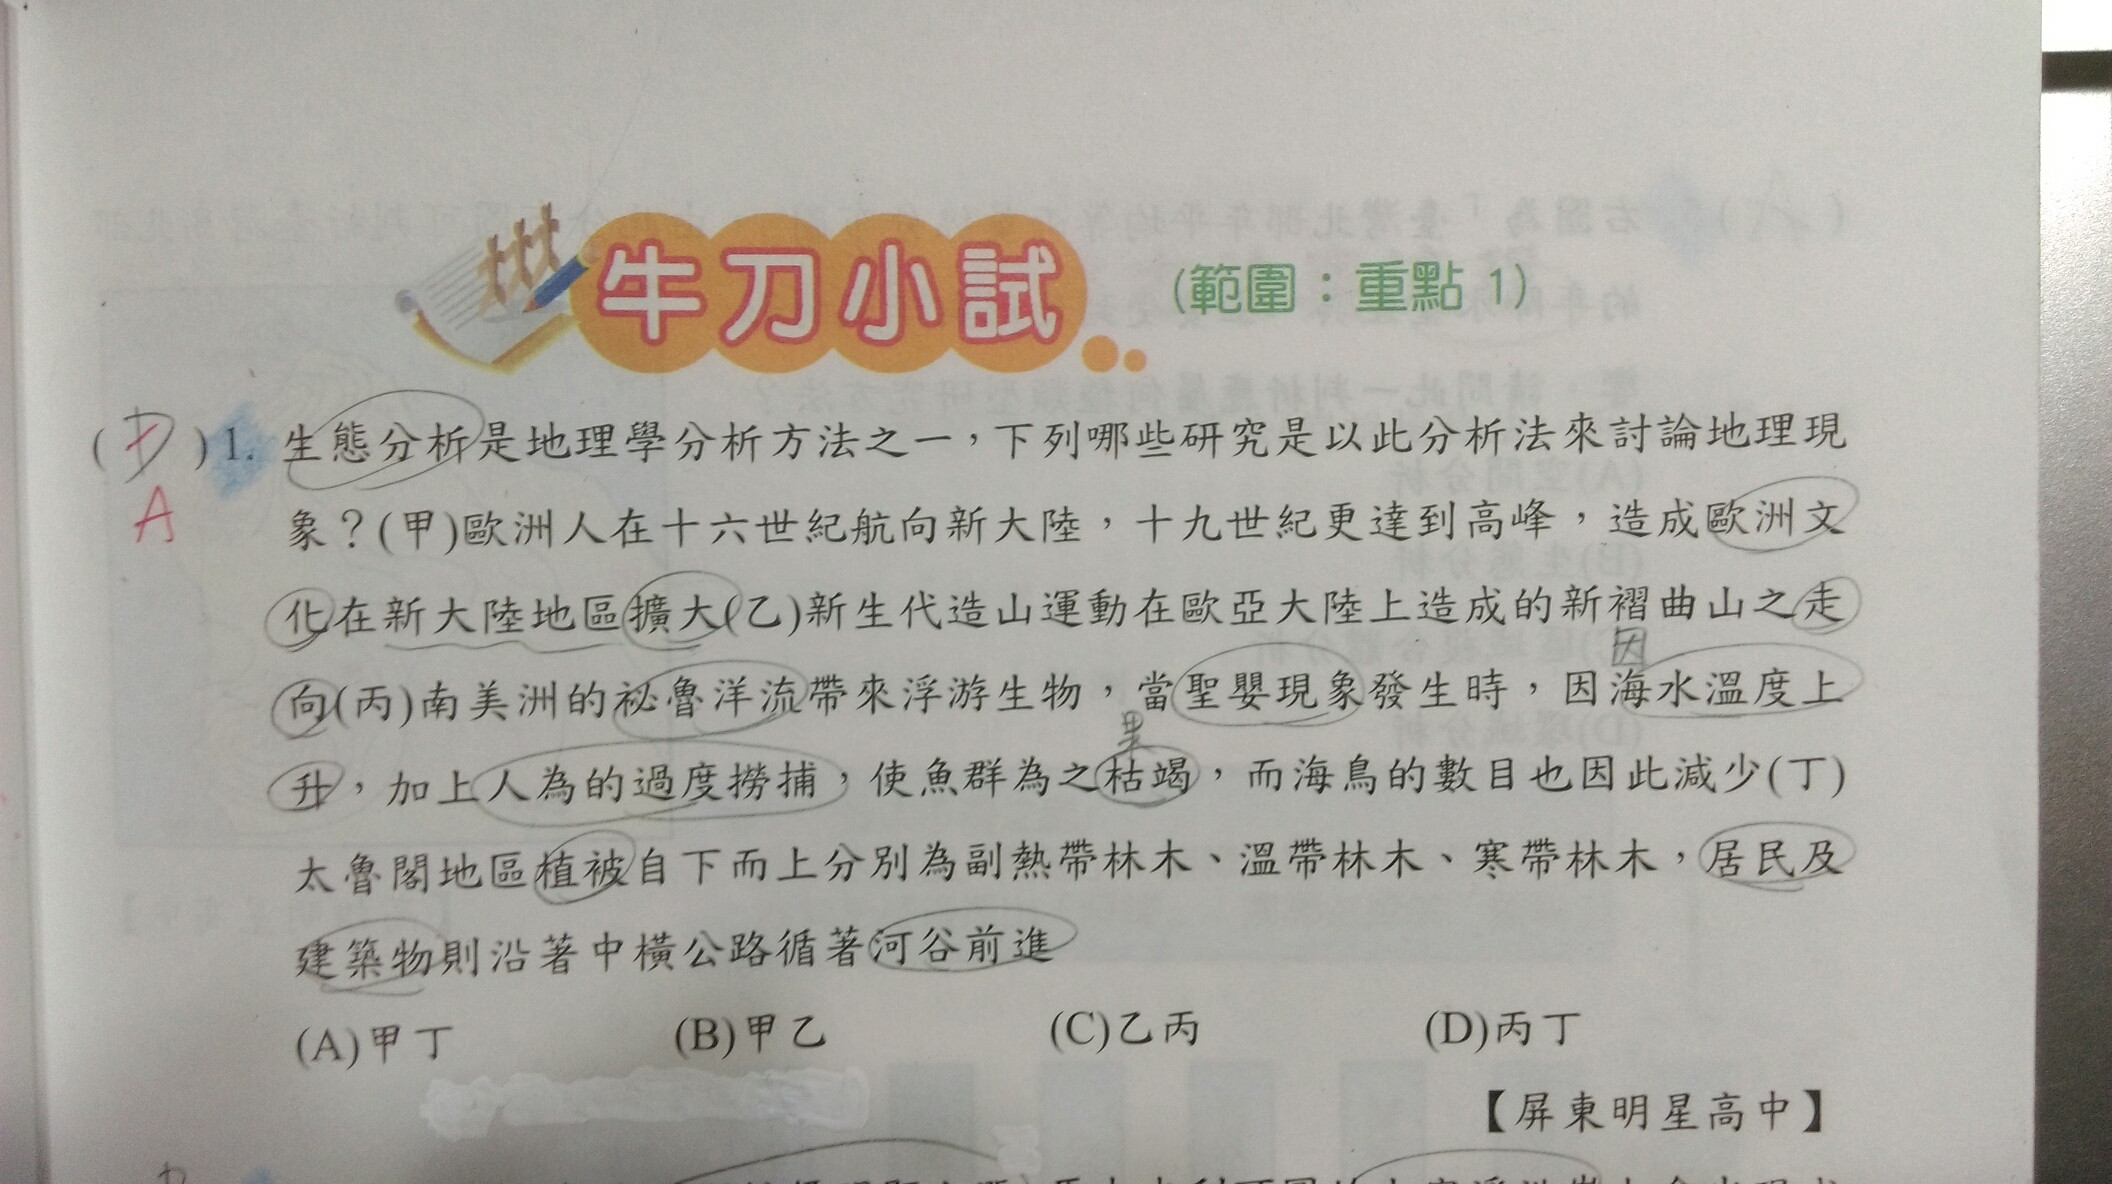 牛刀小試 (範圍：重點 1)
(D)1. 生態分析是地理學分析方法之一，下列哪些研究是以此分析法來討論地理現
A
象？(甲)歐洲人在十六世紀航向新大陸，十九世紀更達到高峰，造成歐洲文
化在新大陸地區擴大(乙)新生代造山運動在歐亞大陸上造成的新褶曲山之走
因
向(丙)南美洲的祕魯洋流帶來浮游生物，當聖嬰現象發生時，因海水溫度上
果
升，加上人為的過度撈捕，使魚群為之枯竭，而海鳥的數目也因此減少(丁)
太魯閣地區植被自下而上分別為副熱帶林木、溫帶林木、寒帶林木，居民及
建築物則沿著中橫公路循著河谷前進
(A)甲丁 (B)甲乙 (C)乙丙 (D)丙丁
【屏東明星高中】